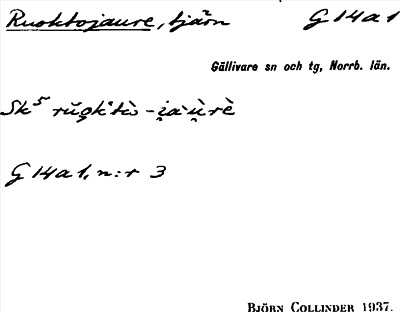 Ruoktojaure, tjärn G 14 a 1
Gällivare sn och tg, Norrb. län.
Sk⁵
G 14 a 1, n:r 3
BJÖRN COLLINDER 1937.